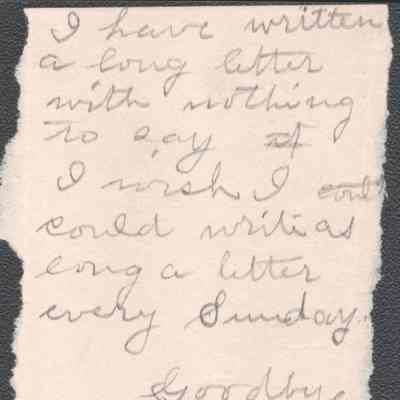 I have written
a long letter
with nothing
to say
I wish I
could write as
long a letter
every Sunday.
Goodbye